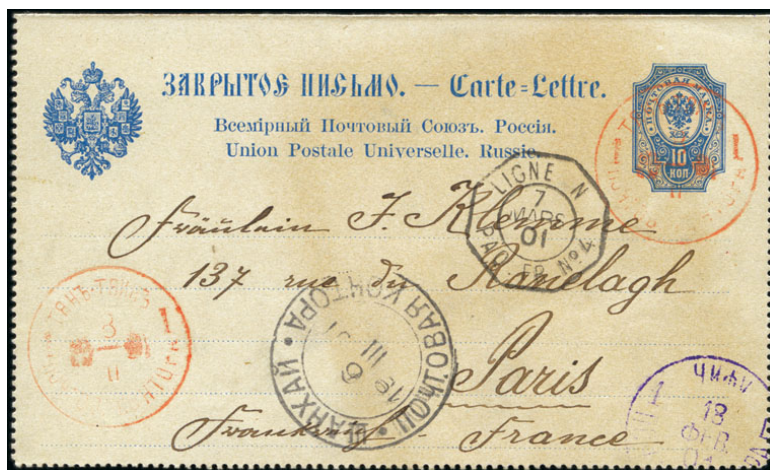 ЗАКРЫТОЕ ПИСЬМО. — Carte-Lettre.
Всемірный Почтовый Союзъ. Россія.
Union Postale Universelle. Russie.
ПОЧТОВАЯ МАРКА
10
КОП
LIGNE N
7
MARS
01
Nº4
Fräulein J. Klemme
137 rue du Ranelagh
Paris
France
ШАНХАЙ • ПОЧТОВАЯ КОНТОРА •
6
III
ЧИФУ
13
ФЕВ.